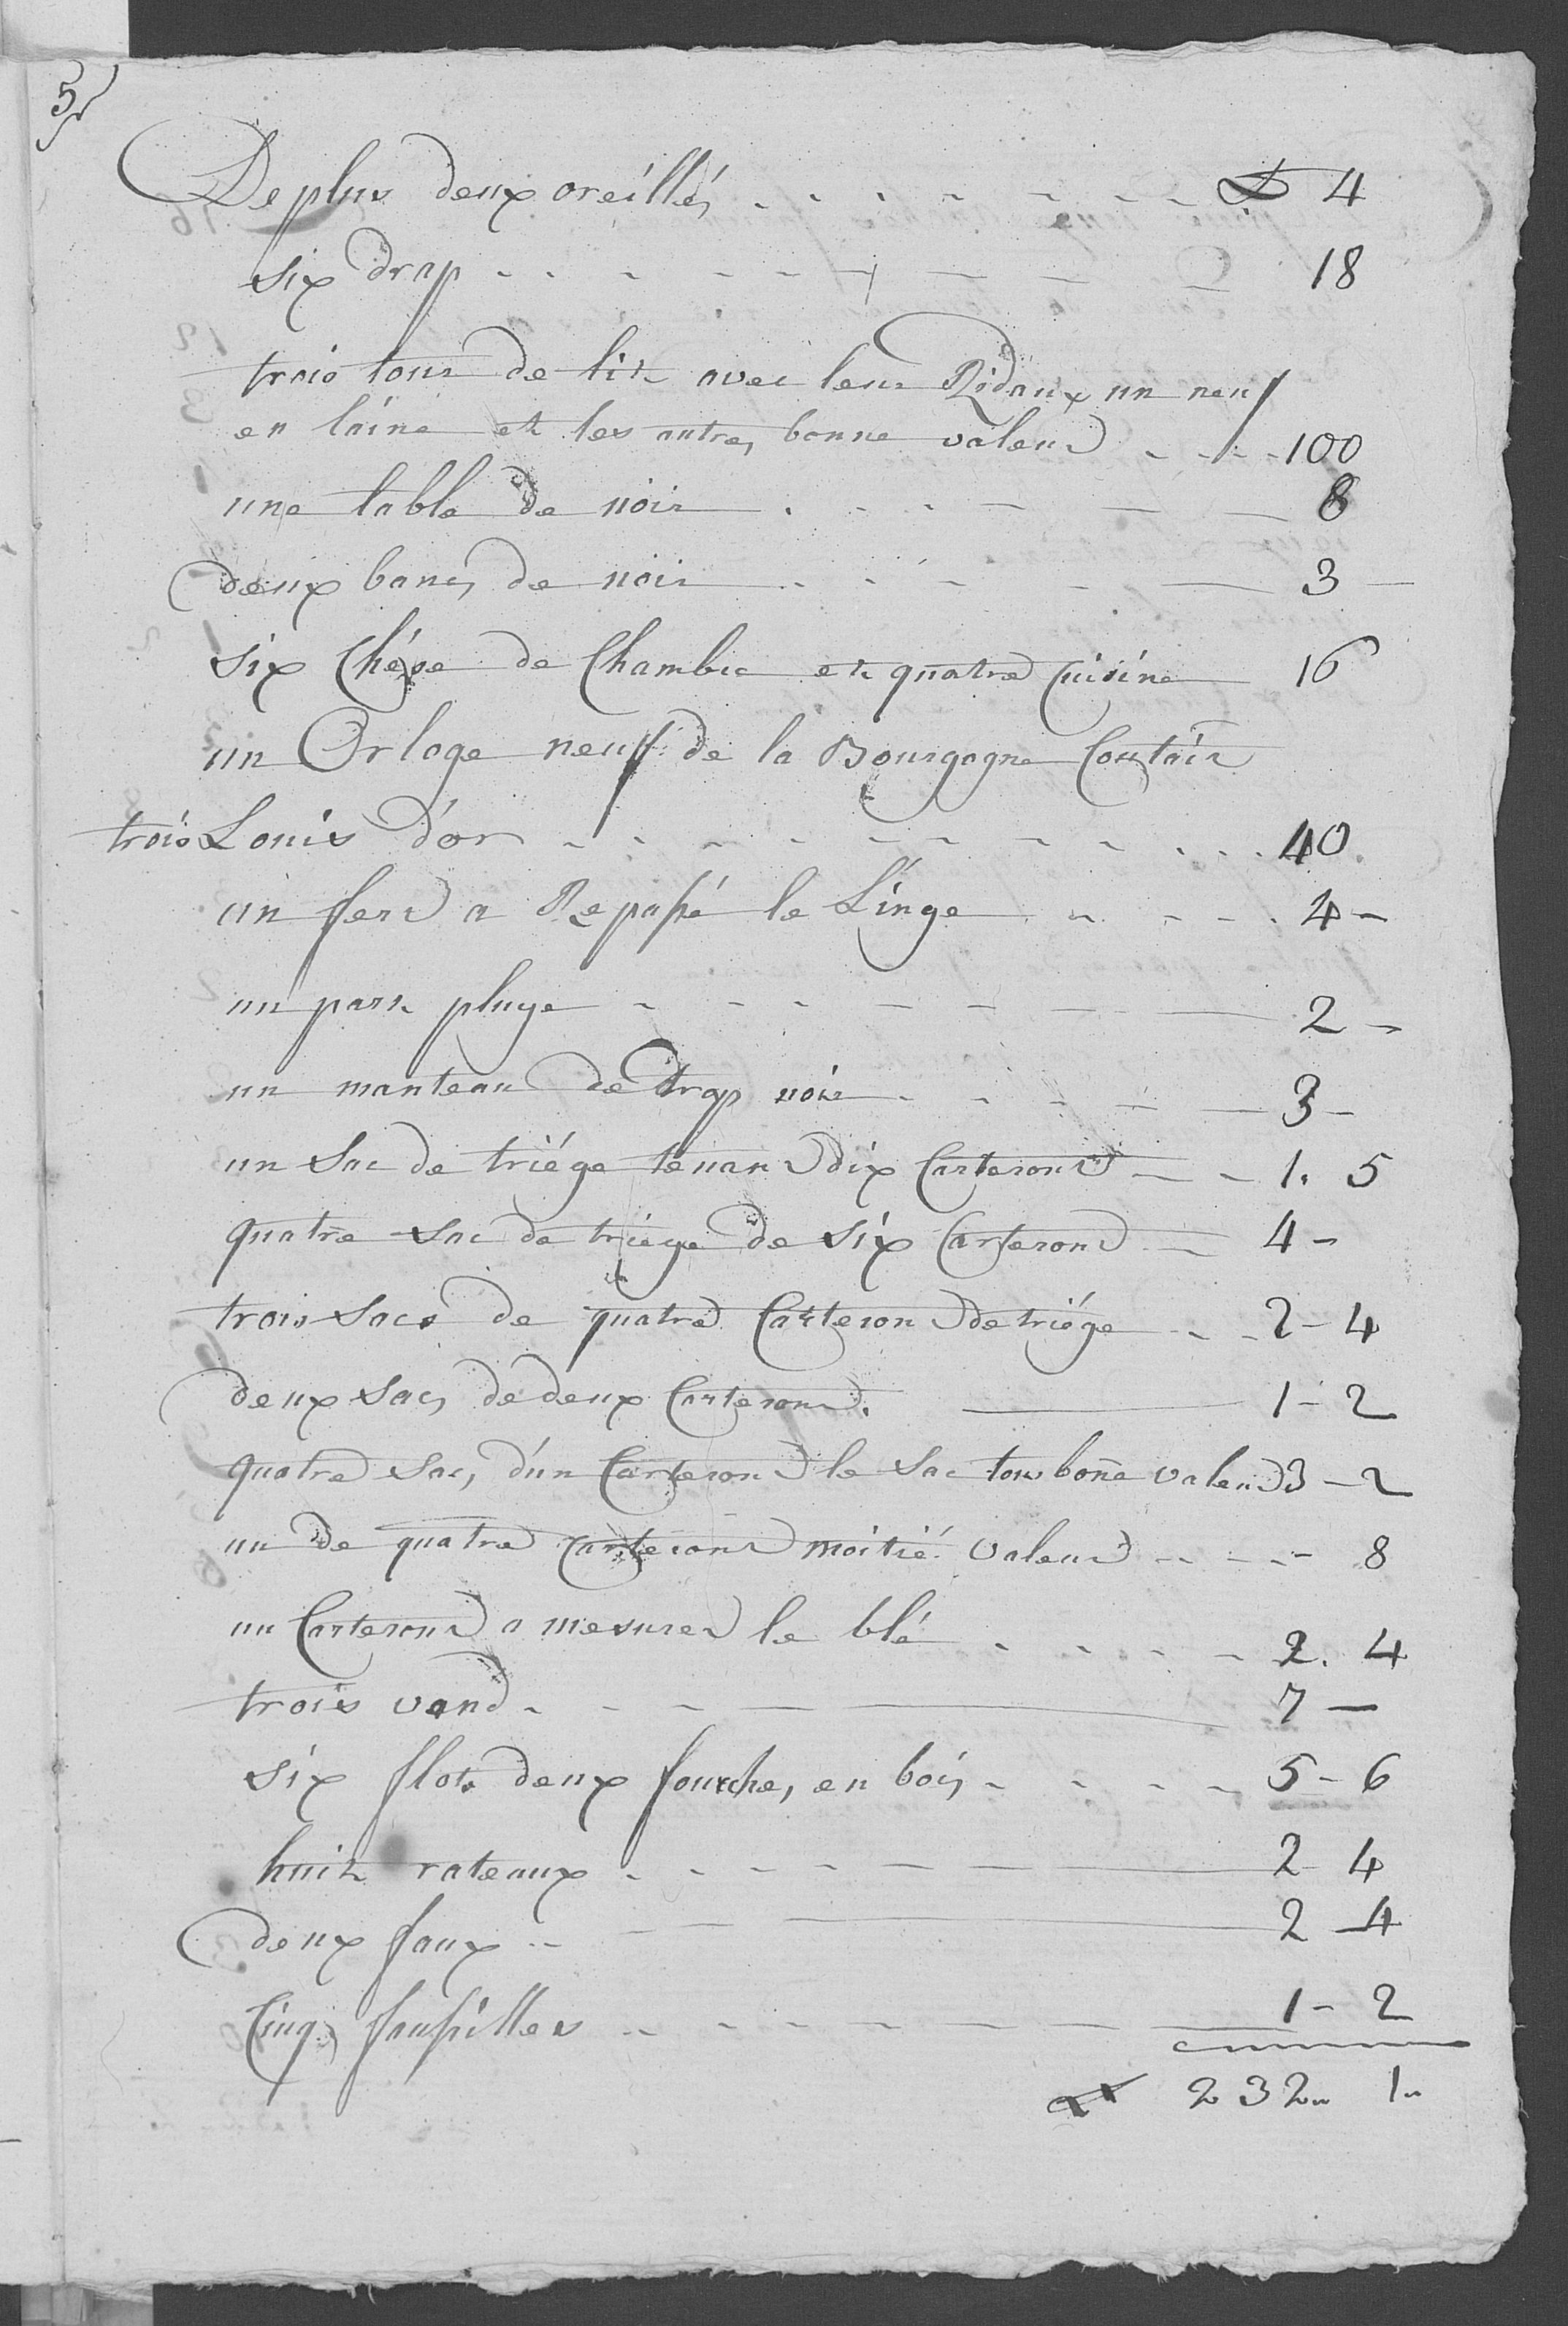 5
De plus deux oreillés 4
six drap 18
trois tour de lit avec leur Ridaux un neuf
en lainé et les autres bonne valeur 100
une table de noir 8
deux bancs de noir 3
six Chése de Chambre et quatre Cuisine 16
un Orloge neuf de la Bourgogne Coutair
trois Louis d'or 40
un ferr a Repassé le Linge 4 -
un part pluye 2 -
un manteau de drap noir 3 -
un Sac de triége tenant dix Carteront 1. 5
quatre Sac de triege de Six Carteront 4 -
trois Sacs de quatre Carteron de triége 2 - 4
deux Sacs de deux Carteront 1 - 2
quatre Sacs d'un Carteron le Sac tous boñe valeur 3 - 2
un de quatre Carteront moitié valeur - 8
un Carteront a mesurer le blé 2. 4
trois vand 7 -
six flots deux fourches en bois 5 - 6
huit rateaux 2 - 4
deux faux 2 - 4
Cinq faussilles 1 - 2
232 1